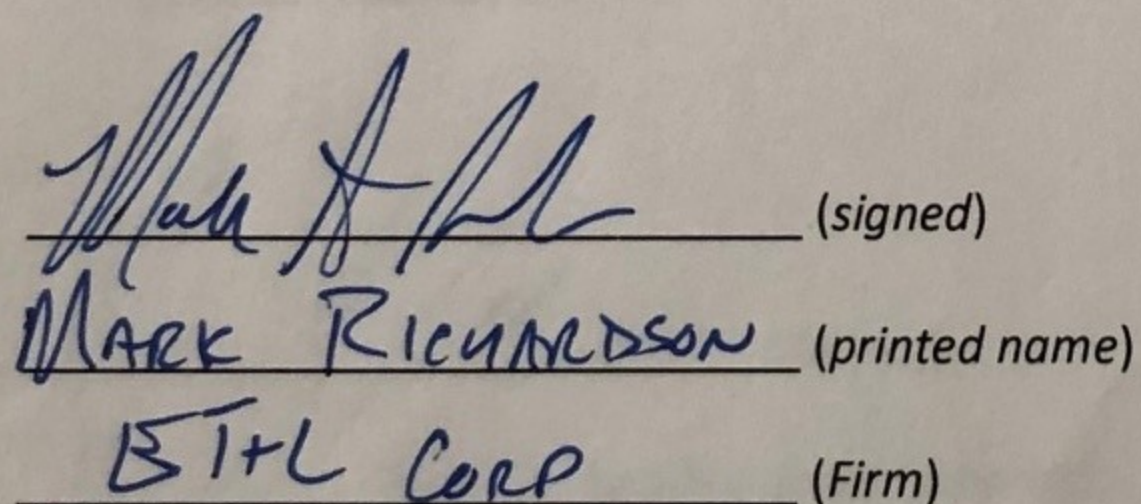 Mark A (signed)
MARK RICHARDSON (printed name)
ET+L CORP (Firm)